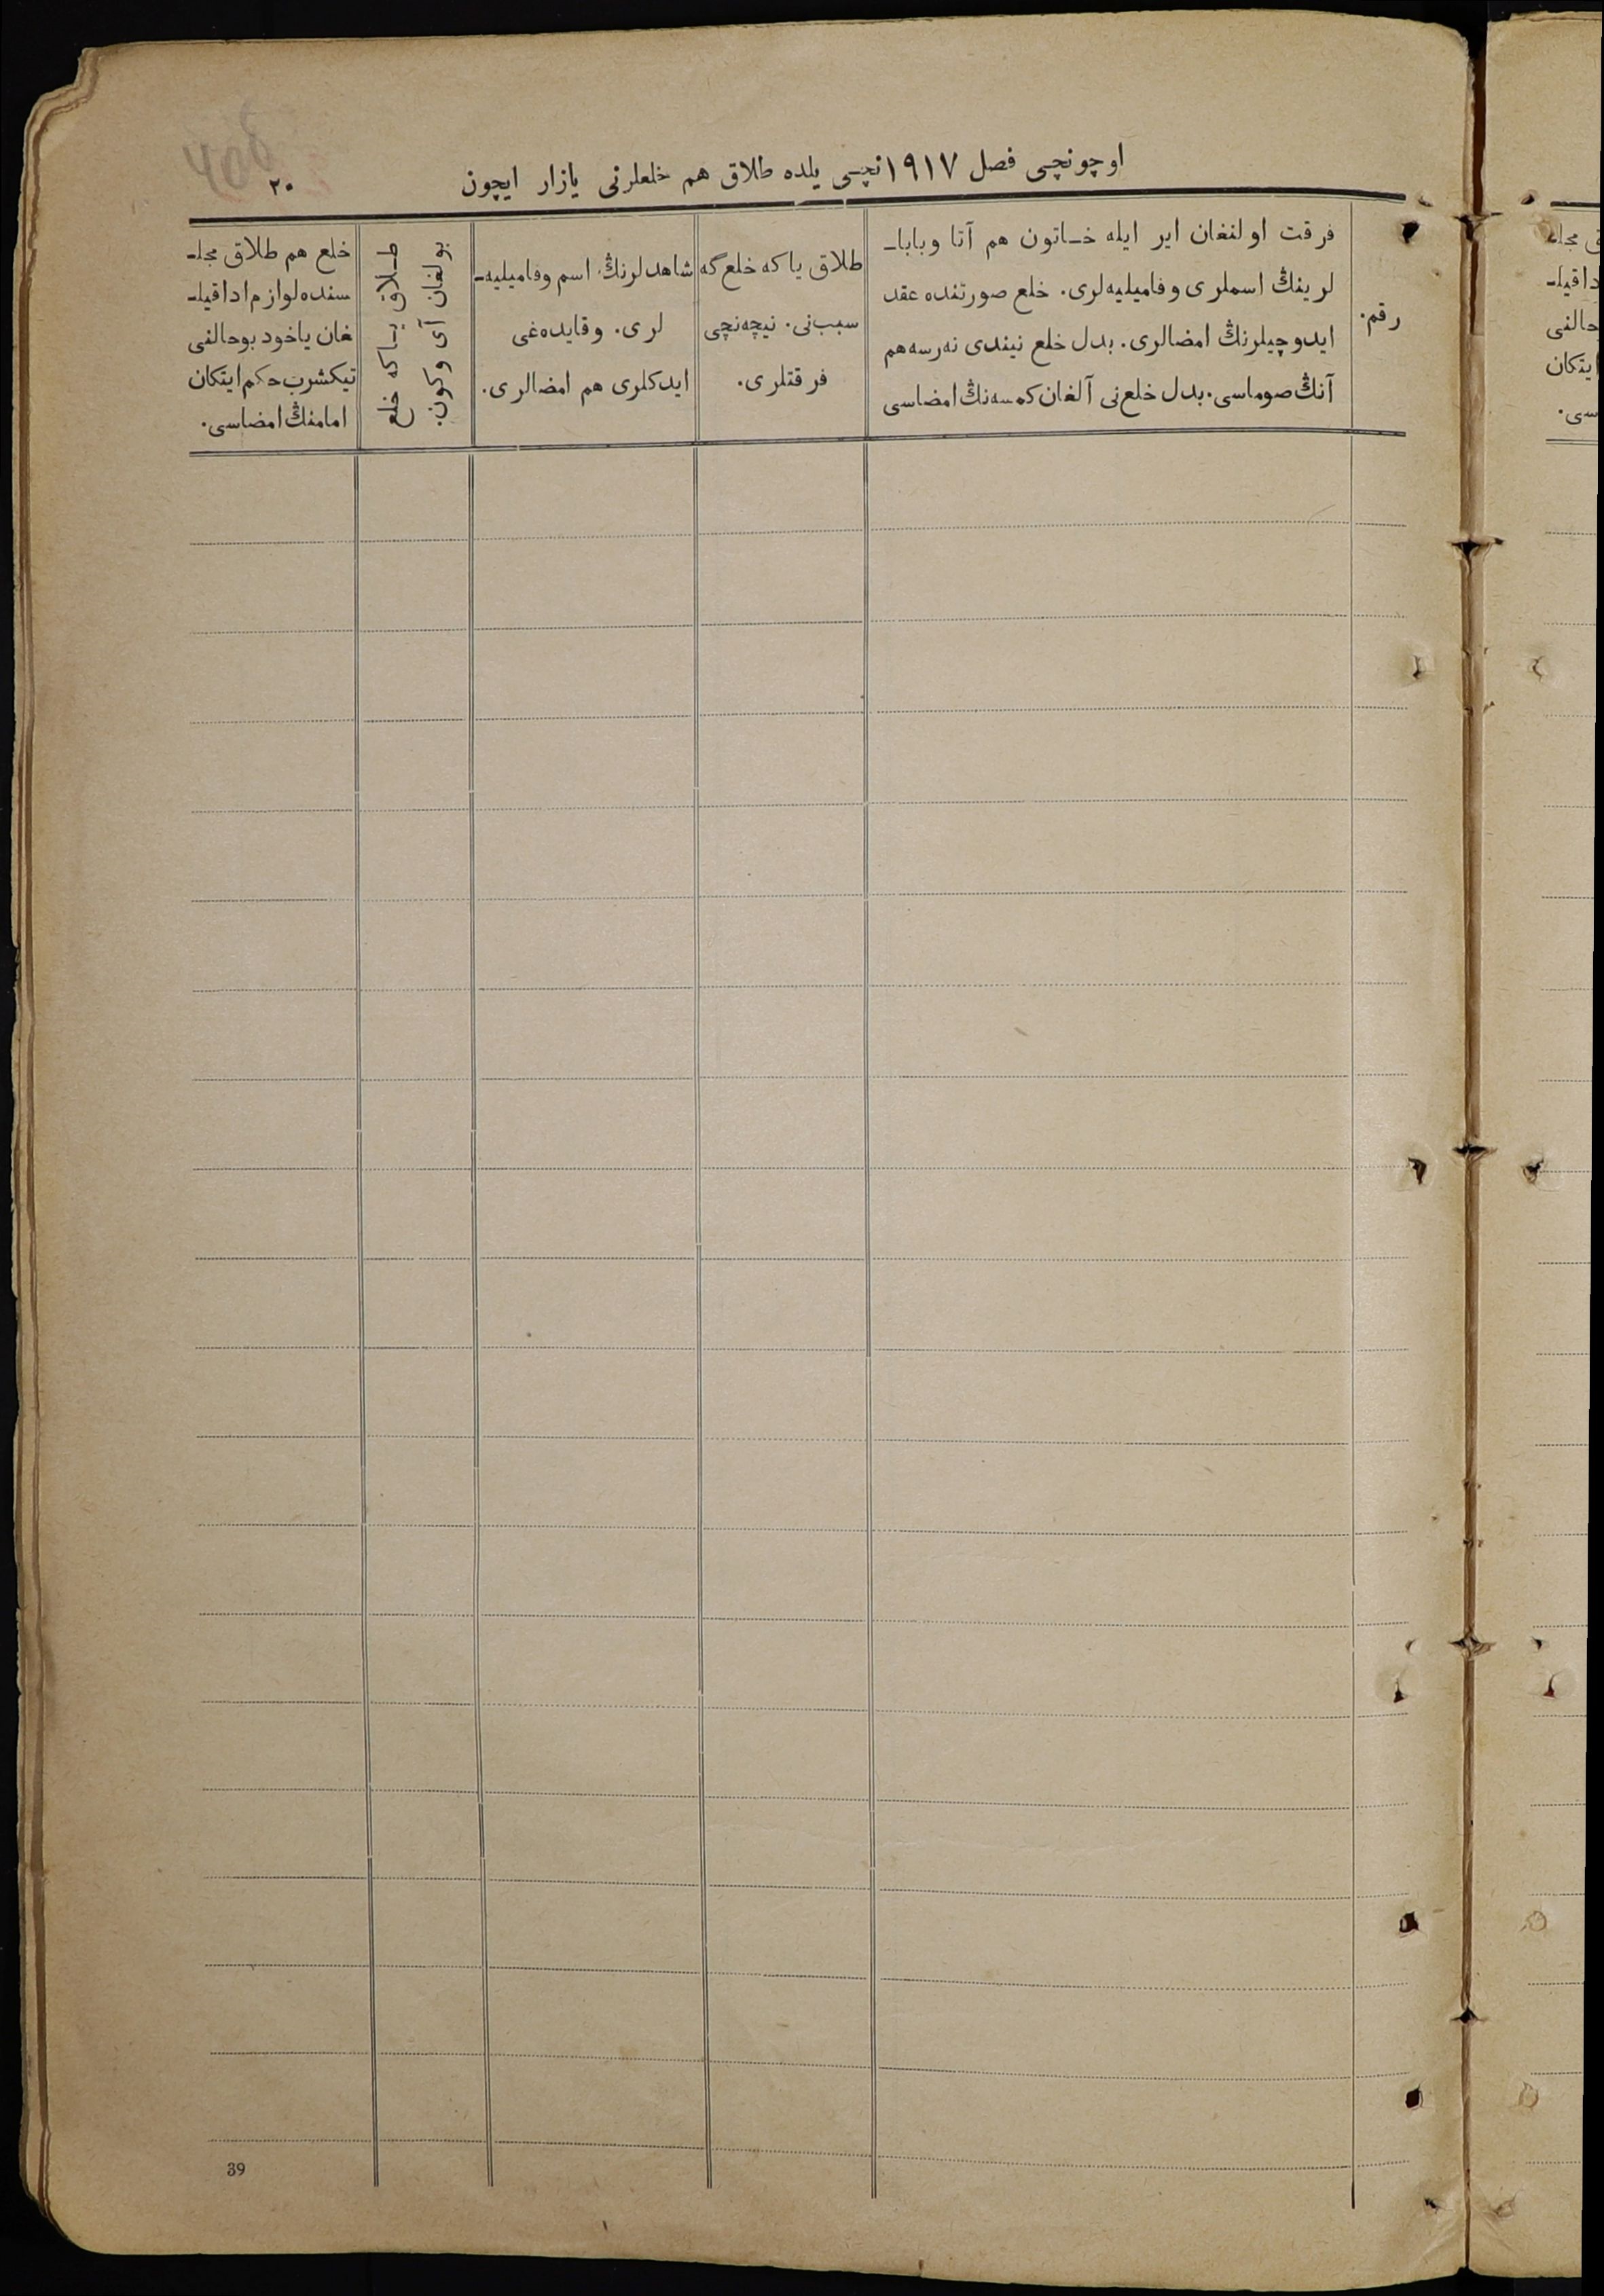 اوچونچی فصل ١٩١٧نچی یلده طلاق هم خلعلرنی یازار ایچون
٢٠
رقم.
فرقت اولنغان ایر ایله خـاتون هم آتا وبابا-
لرینڭ اسملری وفامیلیه‌لری. خلع صورتنده عقد
ایدوچیلرنڭ امضالری. بدل خلع نیندی نه‌رسه هم
آنڭ صوماسی. بدل خلع‌نی آلغان کمسه‌نڭ امضاسی
طلاق یا که خلع‌گه
سبب‌نی. نیچه‌نچی
فرقتلری.
شاهدلرنڭ اسم وفامیلیه-
لری. وقایده‌غی
ایدکلری هم امضالری.
طـلاق یـا که خلع
بولغان آی وکون.
خلع هم طلاق مجلـ
سنده لوازم ادا قیلـ
غان یاخود بوحالنی
تیکشرب حکم ایتکان
امامنڭ امضاسی.
39